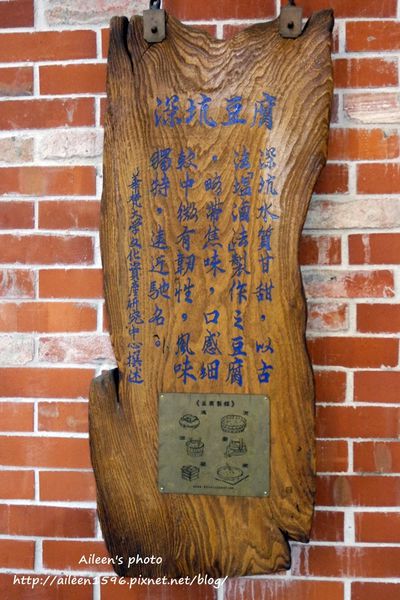 深坑豆腐
深坑水質甘甜，以古
法塩滷法製作之豆腐
，略帶焦味，口感細
軟中微有韌性，風味
獨特，遠近馳名。
華梵大學文化資產研究中心撰述
《豆腐製程》
Aileen's photo
http://aileen1596.pixnet.net/blog/